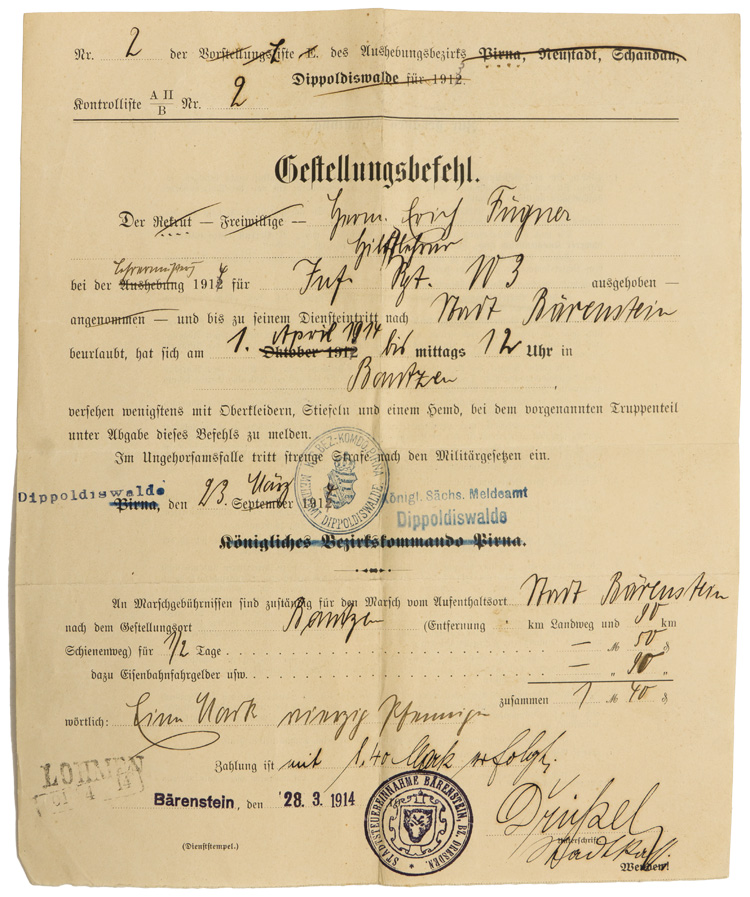 Nr. 2 der Vorstellungsliste E. des Aushebungsbezirks Pirna, Neustadt, Schandau,
Dippoldiswalde für 1912.
Kontrolliste A II/B Nr. 2
Gestellungsbefehl.
Der Rekrut — Freiwillige — Herm. Erich Fügner
Hilfslehrer
bei der Aushebung 1914 für Inf. Rgt. 103 ausgehoben —
angenommen — und bis zu seinem Diensteintritt nach Stadt Bärenstein
beurlaubt, hat sich am 1. April 1914 Oktober 1912 bis mittags 12 Uhr in
Bautzen
versehen wenigstens mit Oberkleidern, Stiefeln und einem Hemd, bei dem vorgenannten Truppenteil
unter Abgabe dieses Befehls zu melden.
Im Ungehorsamsfalle tritt strenge Strafe nach den Militärgesetzen ein.
KGL. BEZ.-KOMDO PIRNA
MELDEAMT DIPPOLDISWALDE
Dippoldiswalde
Pirna, den 23. März September 1912.
Königl. Sächs. Meldeamt
Dippoldiswalde
Königliches Bezirkskommando Pirna.
An Marschgebührnissen sind zuständig für den Marsch vom Aufenthaltsort Stadt Bärenstein
nach dem Gestellungsort Bautzen (Entfernung km Landweg und 90 km
Schienenweg) für 1/2 Tage — M 50 ₰
dazu Eisenbahnfahrgelder usw. — „ 90 „
zusammen 1 M 40 ₰
wörtlich: Eine Mark vierzig Pfennige
Zahlung ist mit 1,40 Mark erfolgt.
LOHMEN
Bärenstein, den 28. 3. 1914
STADTSTEUEREINNAHME BÄRENSTEIN, BZ. DRESDEN.
(Dienststempel.)
Unterschrift
Wenden!